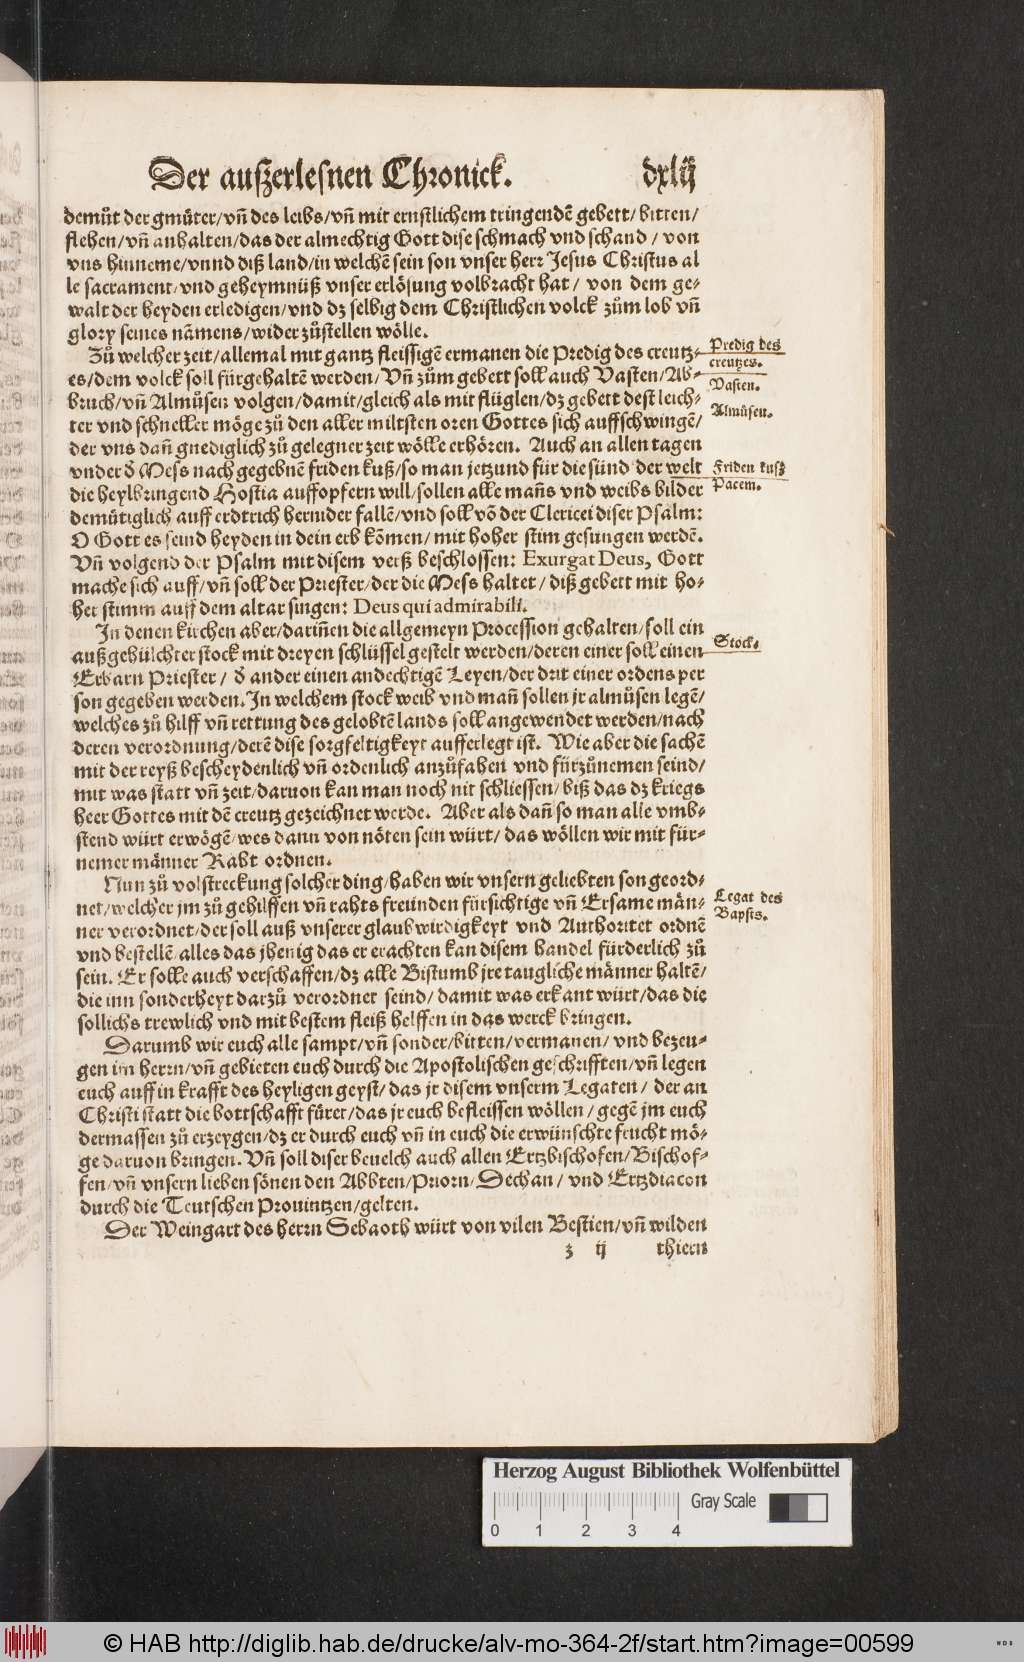 Der auſzerleſnen Chronick. dxlij
demůt der gmüter/vñ des leibs/vñ mit ernſtlichem tringendẽ gebett/bitten/
flehen/vñ anhalten/das der almechtig Gott diſe ſchmach vnd ſchand / von
vns hinneme/vnnd diß land/in welchẽ ſein ſon vnſer herr Jeſus Chriſtus al
le ſacrament/vnd geheymnüß vnſer erlöſung volbracht hat/ von dem ge⸗
walt der heyden erledigen/vnd dz ſelbig dem Chriſtlichen volck zům lob vñ
glory ſeines nāmens/wider zůſtellen wölle.
Zů welcher zeit/allemal mit gantz fleiſſigẽ ermanen die Predig des creutz⸗
es/dem volck ſoll fürgehaltẽ werden/Vñ zům gebett ſoll auch Vaſten/Ab⸗
bruch/vñ Almůſen volgen/damit/gleich als mit flüglen/dz gebett deſt leich⸗
ter vnd ſchneller möge zů den aller miltſten oren Gottes ſich auffſchwingẽ/
der vns dañ gnediglich zů gelegner zeit wölle erhören. Auch an allen tagen
vnder ð Meſs nach gegebnẽ friden kuß/ſo man jetzund für die ſünd der welt
die heylbringend Hoſtia auffopfern will/ſollen alle mañs vnd weibs bilder
demütiglich auff erdtrich hernider fallẽ/vnd ſoll võ der Clericei diſer Pſalm:
O Gott es ſeind heyden in dein erb kõmen/mit hoher ſtim geſungen werdẽ.
Vñ volgend der Pſalm mit diſem verß beſchloſſen: Exurgat Deus, Gott
mache ſich auff/vñ ſoll der Prieſter/der die Meſs haltet/ diß gebett mit ho⸗
her ſtimm auff dem altar ſingen: Deus qui admirabili.
In denen kirchen aber/dariñen die allgemeyn Proceſſion gehalten/ſoll ein
außgehülchter ſtock mit dreyen ſchlüſſel geſtelt werden/deren einer ſoll einen
Erbarn Prieſter/ ð ander einen andechtigẽ Leyen/der drit einer ordens per
ſon gegeben werden. In welchem ſtock weib vnd mañ ſollen jr almůſen legẽ/
welches zů hilff vñ rettung des gelobtẽ lands ſoll angewendet werden/nach
deren verordnung/derẽ diſe ſorgfeltigkeyt aufferlegt iſt. Wie aber die ſachẽ
mit der reyß beſcheydenlich vñ ordenlich anzůfahen vnd fürzůnemen ſeind/
mit was ſtatt vñ zeit/daruon kan man noch nit ſchlieſſen/biß das dz kriegs
heer Gottes mit dẽ creutz gezeichnet werde. Aber als dañ ſo man alle vmb⸗
ſtend würt erwögẽ/wes dann von nöten ſein würt/das wöllen wir mit für⸗
nemer männer Raht ordnen.
Nun zů volſtreckung ſolcher ding/haben wir vnſern geliebten ſon geord⸗
net/welcher jm zů gehilffen vñ rahts freünden fürſichtige vñ Erſame män⸗
ner verordnet/der ſoll auß vnſerer glaubwirdigkeyt vnd Authoritet ordnẽ
vnd beſtellẽ/alles das jhenig das er erachten kan diſem handel fürderlich zů
ſein. Er ſolle auch verſchaffen/dz alle Biſtumb jre taugliche männer haltẽ/
die inn ſonderheyt darzů verordnet ſeind/damit was erkant würt/das die
ſollichs trewlich vnd mit beſtem fleiß helffen in das werck bringen.
Darumb wir euch alle ſampt/vñ ſonder/bitten/vermanen/ vnd bezeu⸗
gen im herrn/vñ gebieten euch durch die Apoſtoliſchen geſchrifften/vñ legen
euch auff in krafft des heyligen geyſt/das jr diſem vnſerm Legaten/ der an
Chriſti ſtatt die bottſchafft füret/das jr euch befleiſſen wöllen/gegẽ jm euch
dermaſſen zů erzeygen/dz er durch euch vñ in euch die erwünſchte frucht mö⸗
ge daruon bringen. Vñ ſoll diſer beuelch auch allen Ertzbiſchofen/Biſchof⸗
fen/vñ vnſern lieben ſönen den Abbten/Priorn/Dechan/ vnd Ertzdiacon
durch die Teutſchen Prouintzen/gelten.
Der Weingart des herrn Sebaoth würt von vilen Beſtien/vñ wilden
z ij thiern
Predig des
creutzes.
Vaſten.
Almůſen.
Friden kuſz
Pacem.
Stock.
Legat des
Bapſts.
Herzog August Bibliothek Wolfenbüttel
Gray Scale
0 1 2 3 4
© HAB http://diglib.hab.de/drucke/alv-mo-364-2f/start.htm?image=00599